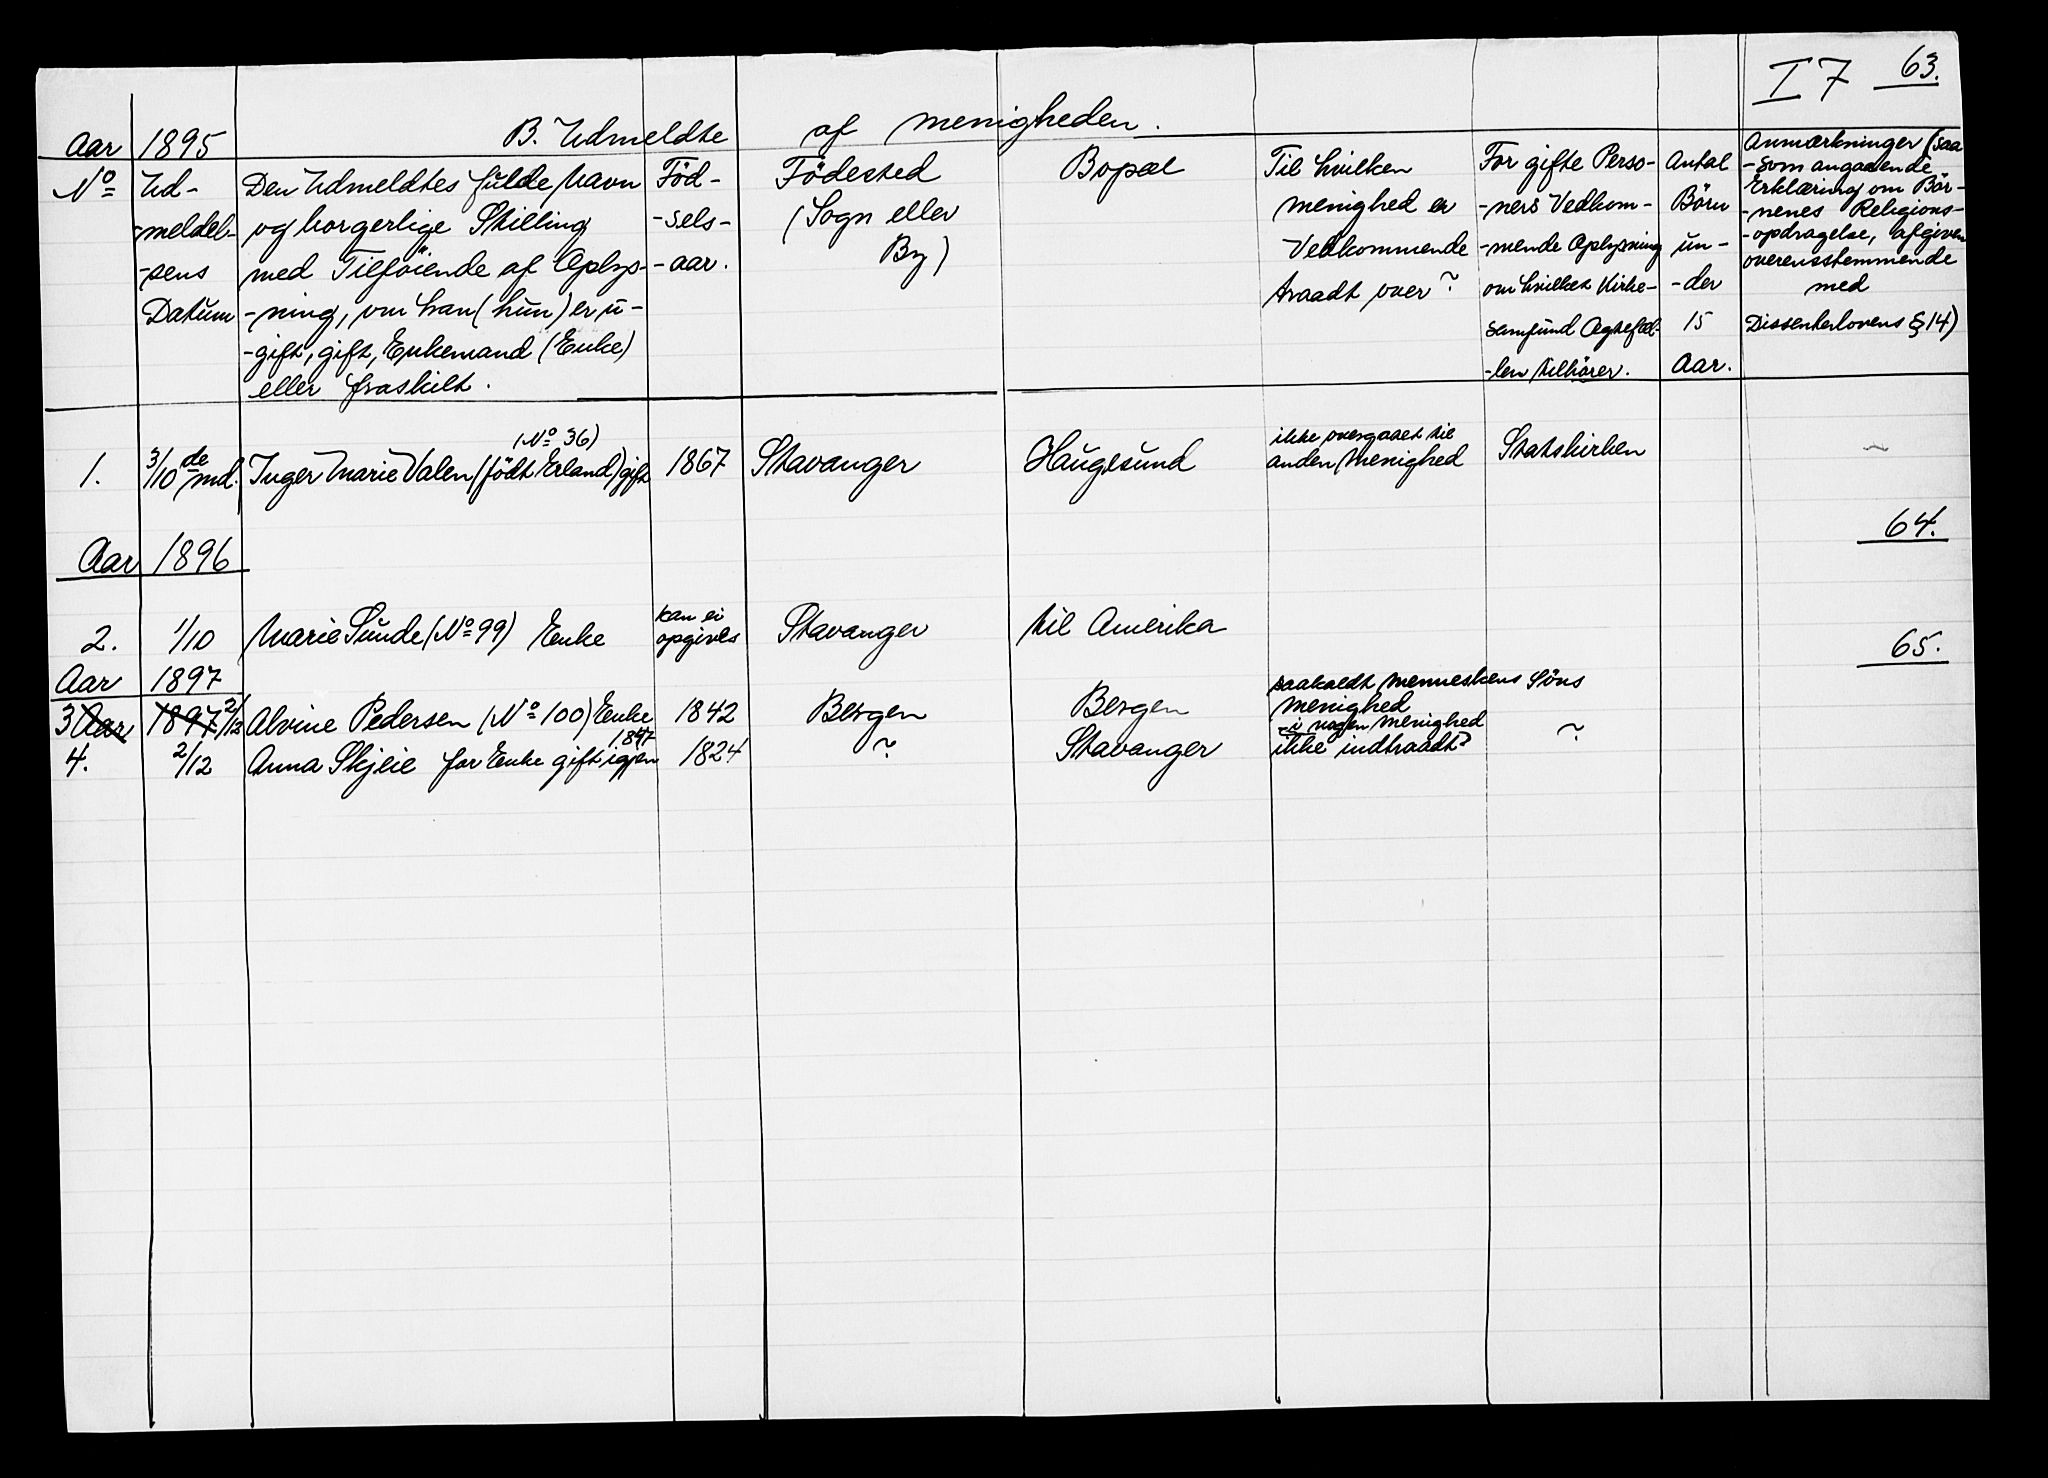 I 7 63.
Aar 1895 B. Udmeldte af menigheden.
No Ud-
-meldel-
-sens
Datum
Den Udmeldtes fulde Navn
og borgerlige Stilling
med Tilføiende af Oplys-
-ning, om han (hun) er u-
-gift, gift, Enkemand (Enke)
eller fraskilt.
Föd-
-sels-
-aar.
Födested
(Sogn eller
By)
Bopæl
Til hvilken
menighed er
Vedkommende
traadt over?
For gifte Perso-
-ners Vedkom-
-mende Oplysning
om hvilket Kirke-
samfund Ægtefæl-
-len tilhörer.
Antal
Börn
un-
-der
15
Aar.
Anmærkninger (saa
-som angaaende
Erklæring om Bör-
-nenes Religions-
-opdragelse, afgiven
overensstemmende
med
Dissenterlovens § 14)
(No 36)
1. 3/10 de md. Inger Marie Valen (födt Erland) gift 1867 Stavanger Haugesund ikke overgaaet til
anden Menighed Statskirken ~
64.
Aar 1896
2. 1/10 Marie Sunde (No 99) Enke kan ei
opgives Stavanger til Amerika
65.
Aar 1897
3 Aar 1897 2/12 Alvine Pedersen (No 100) Enke 1842 Bergen Bergen saakaldt Menneskens Söns
Menighed
4. 2/12 Anna Skjeie før Enke gift igjen 1847 1824 ~ Stavanger -i nogen Menighed
ikke indtraadt? ~